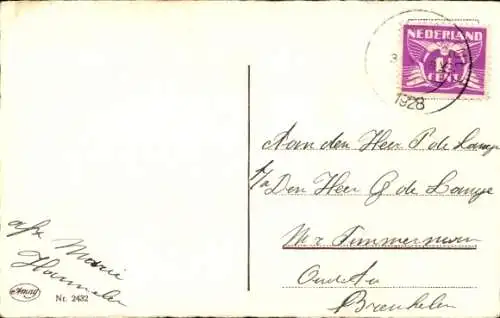 NEDERLAND
1½
CENT
1928
Aan den Heer P de Lange
p/a Den Heer G de Lange
Mr Timmerman
Oud Aa
Breukelen
afz Marie
Harmelen
Amag
Nr. 2432